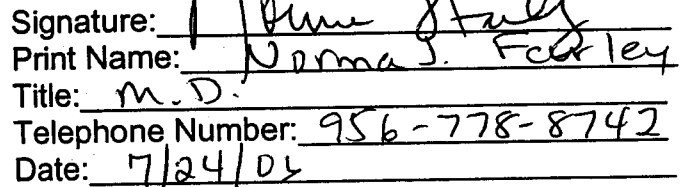 Signature:
Print Name: Norma J. Farley
Title: M.D.
Telephone Number: 956-778-8742
Date: 7/24/